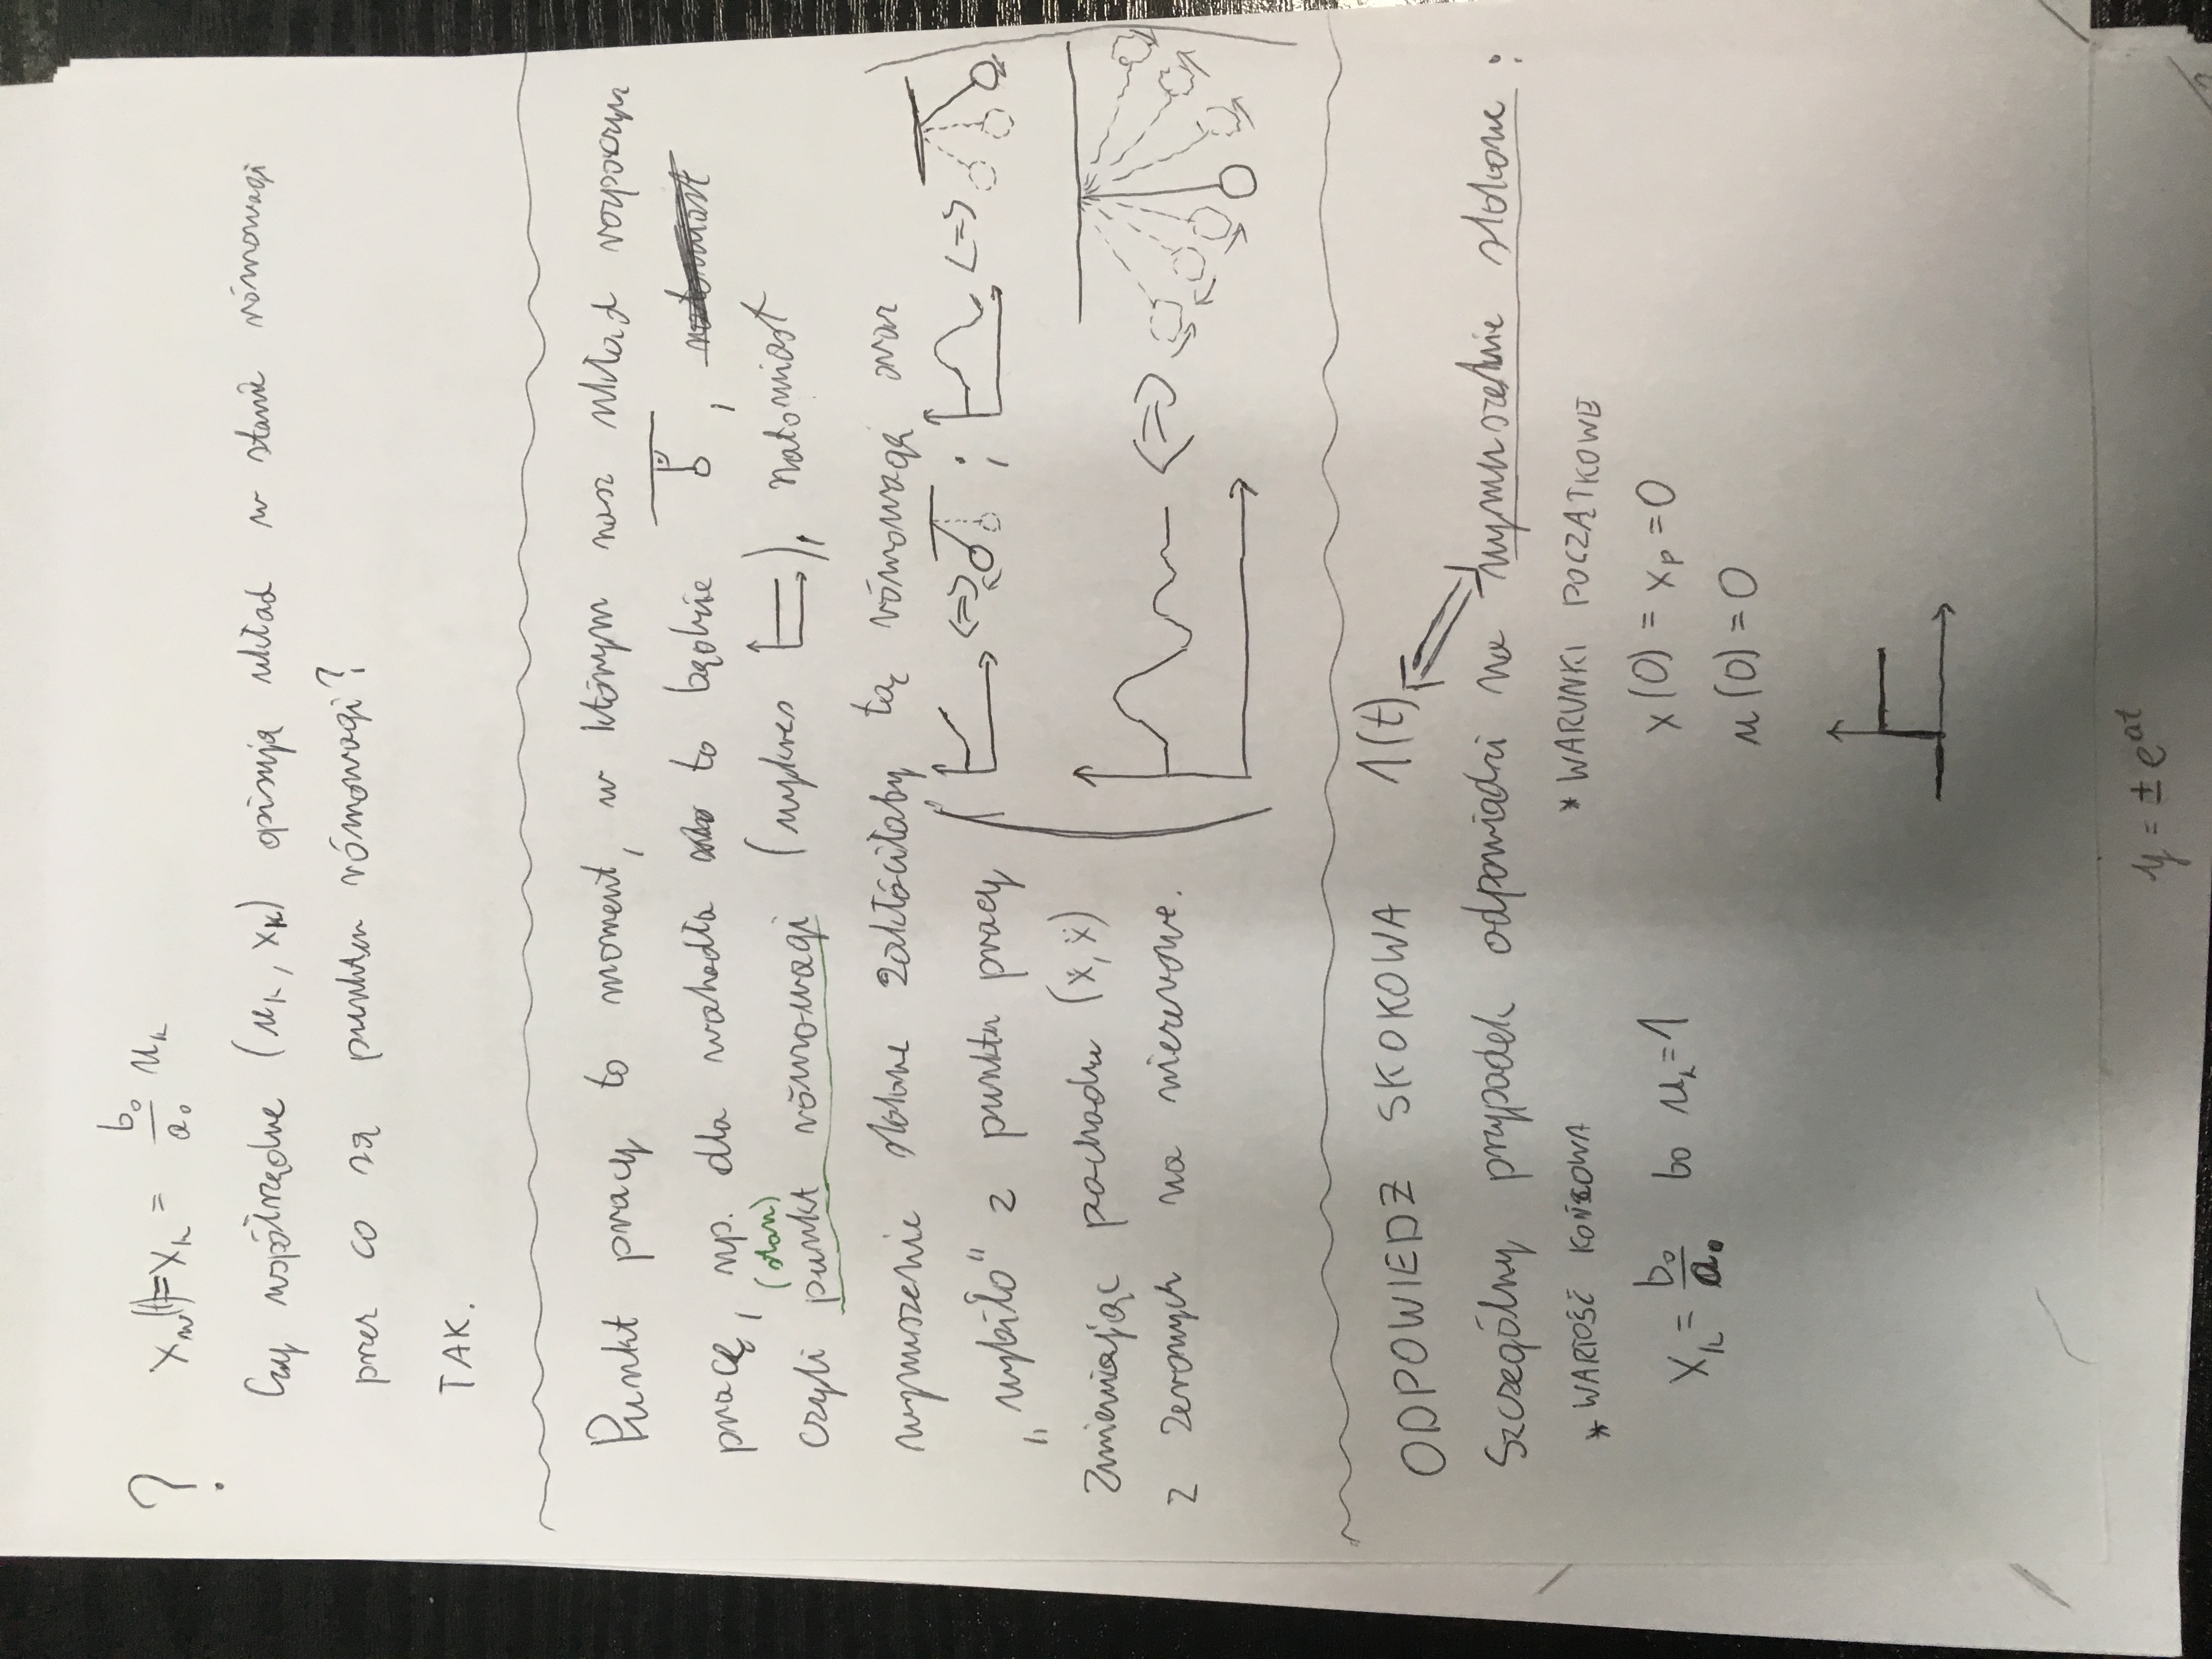 ? x_w(t)=x_k = b₀/a₀ u_k
Czy współrzędne (u_k, x_k) opisują układ w stanie równowagi
przez co są punktem równowagi?
TAK.
Punkt pracy to moment, w którym nasz układ rozpoczyna
pracę, np. dla wahadła to będzie , natomiast
(stan)
czyli punkt równowagi (wykres ), natomiast
wymuszenie skokowe zakłóciłaby tą równowagę oraz
„wybiło” z punktu pracy ( <=> ; <=>
zmieniając pochodne (ẋ, ẍ)
z zerowych na niezerowe. <=> )
ODPOWIEDZ SKOKOWA 1(t)
Szczególny przypadek odpowiadzi na wymuszenie skokowe :
* WARTOŚĆ KOŃCOWA * WARUNKI POCZĄTKOWE
x_k = b₀/a₀ bo u_k=1 x(0) = x_p = 0
u(0) = 0
y = ± e^{at}